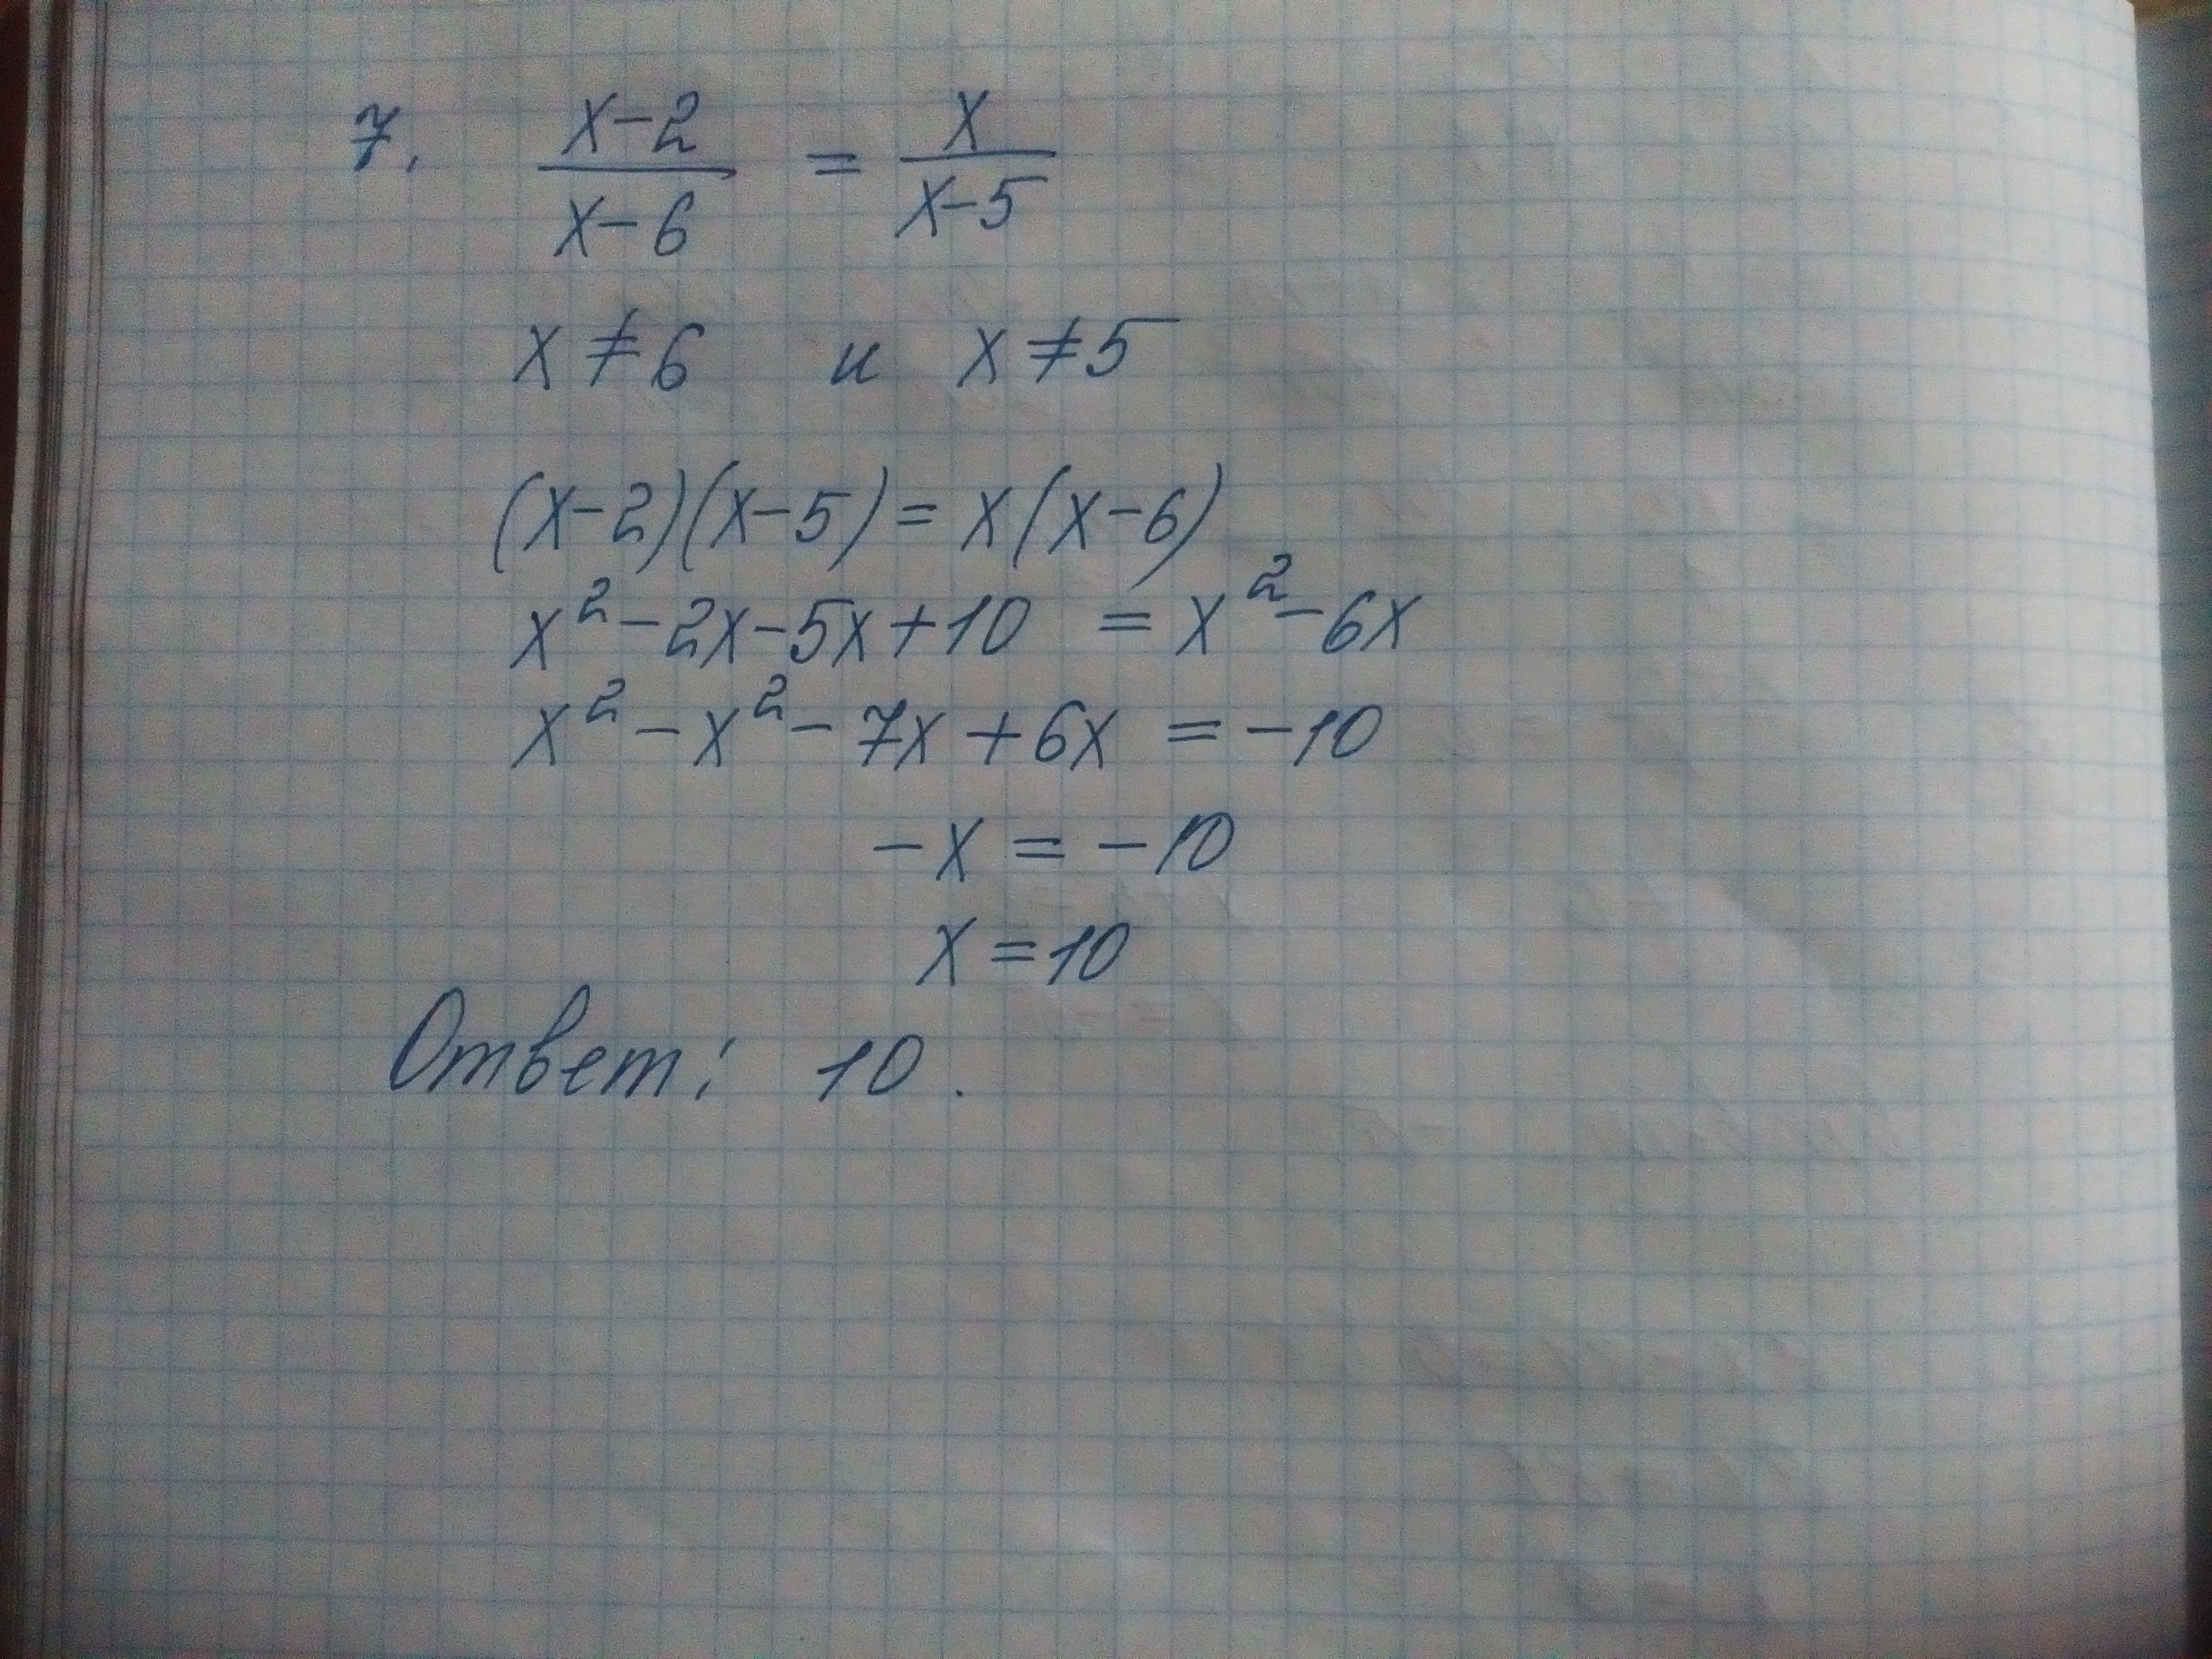 7. (x-2)/(x-6) = x/(x-5)
x≠6 и x≠5
(x-2)(x-5)=x(x-6)
x²-2x-5x+10 = x²-6x
x²-x²-7x+6x = -10
-x = -10
x=10
Ответ: 10.